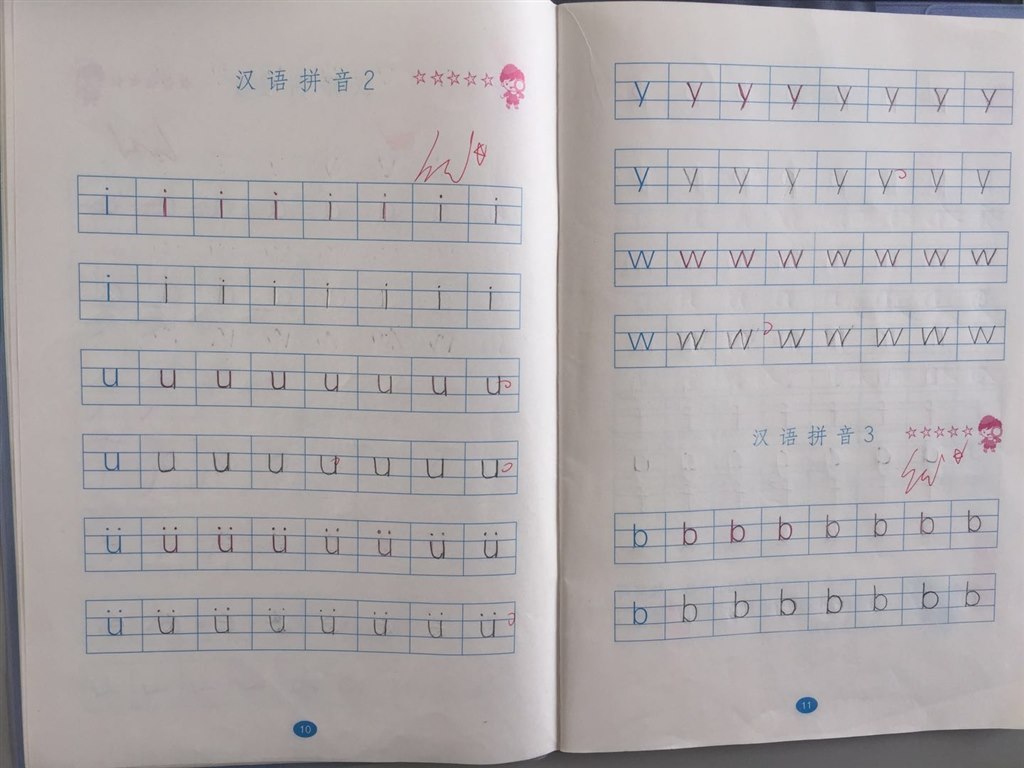 汉语拼音2
i i i i i i i i
i i i i i i i i
u u u u u u u u
u u u u u u u u
ü ü ü ü ü ü ü ü
ü ü ü ü ü ü ü ü
10
y y y y y y y y
y y y y y y y y
w w w w w w w w
w w w w w w w w
汉语拼音3
b b b b b b b b
b b b b b b b b
11